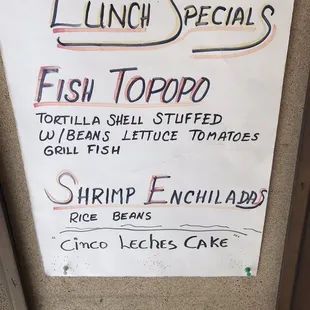 LUNCH SPECIALS
FISH TOPOPO
TORTILLA SHELL STUFFED
W/BEANS LETTUCE TOMATOES
GRILL FISH
SHRIMP ENCHILADAS
RICE BEANS
"CINCO LECHES CAKE"